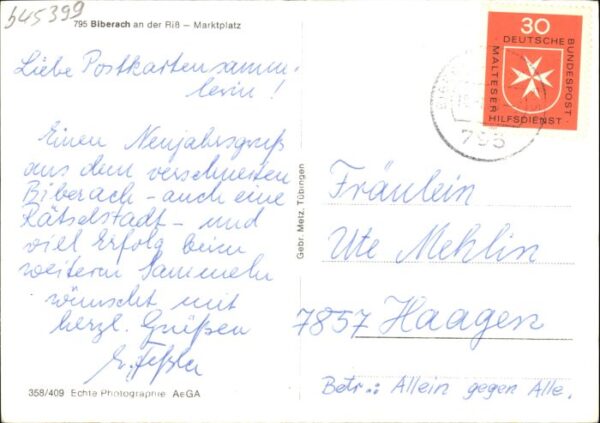 b45399
795 Biberach an der Riß – Marktplatz
Liebe Postkartensamm-
lerin!
Einen Neujahrsgruß
aus dem verschneiten
Biberach - auch eine
Rätselstadt - und
viel Erfolg beim
weiteren Sammeln
wünscht mit
herzl. Grüßen
358/409 Echte Photographie AeGA
Gebr. Metz, Tübingen
30
DEUTSCHE
BUNDESPOST
MALTESER
HILFSDIENST
795
Fräulein
Ute Mehlin
7857 Haagen
Betr.: Allein gegen Alle.